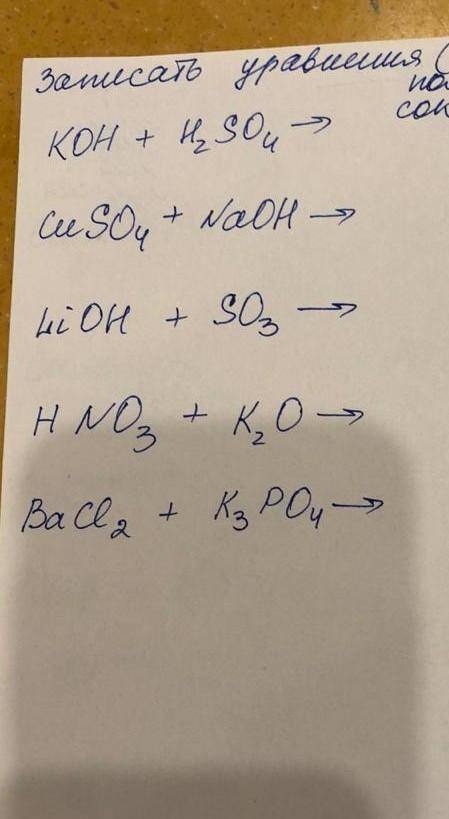 Записать уравнения (
KOH + H₂SO₄ →
CuSO₄ + NaOH →
LiOH + SO₃ →
HNO₃ + K₂O →
BaCl₂ + K₃PO₄ →